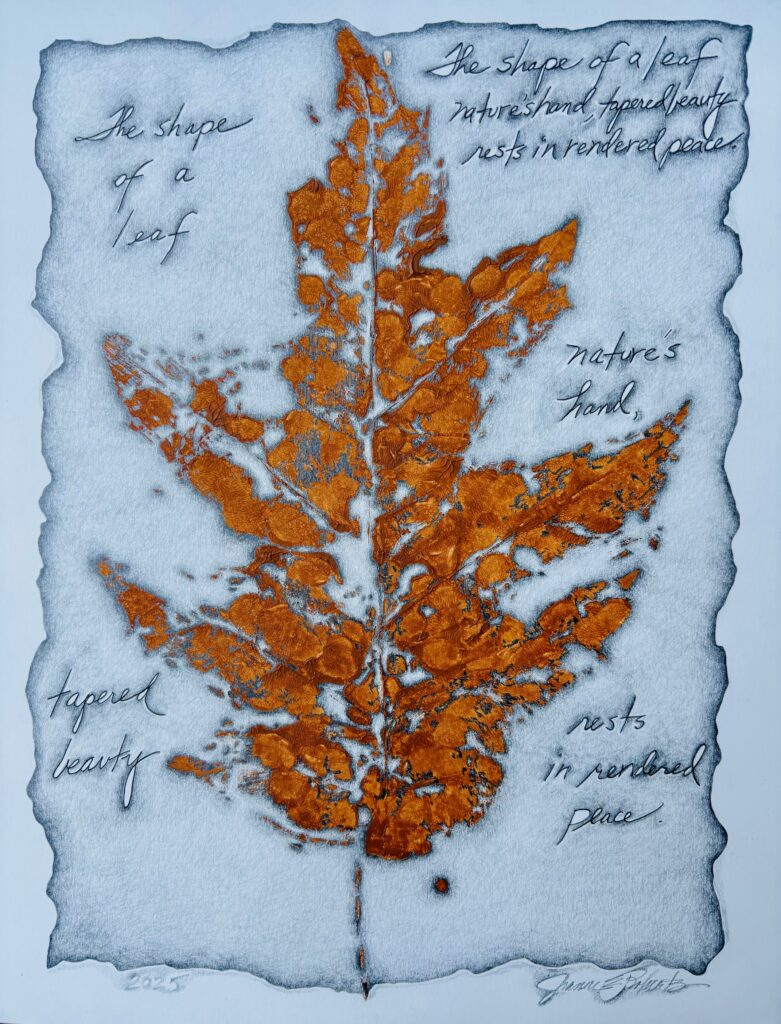 The shape of a leaf
nature's hand, tapered beauty
rests in rendered peace.
The shape
of a
leaf
nature's
hand,
tapered
beauty
rests
in rendered
peace.
2025